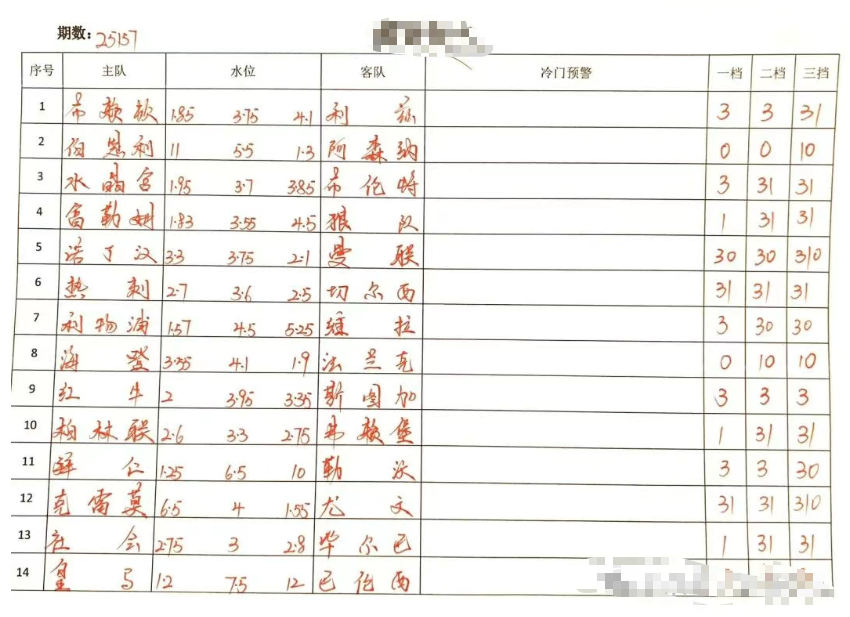 期数: 25157
序号 主队 水位 客队 冷门预警 一档 二档 三挡
1 布赖顿 1.85 3.75 4.1 利兹 3 3 31
2 伯恩利 11 5.5 1.3 阿森纳 0 0 10
3 水晶宫 1.95 3.7 3.85 布伦特 3 31 31
4 富勒姆 1.83 3.55 4.5 狼队 1 31 31
5 诺丁汉 3.3 3.75 2.1 曼联 30 30 310
6 热刺 2.7 3.6 2.5 切尔西 31 31 31
7 利物浦 1.57 4.5 5.25 维拉 3 30 30
8 海登 3.55 4.1 1.9 法兰克 0 10 10
9 红牛 2 3.95 3.35 斯图加 3 3 3
10 柏林联 2.6 3.3 2.75 弗赖堡 1 31 31
11 拜仁 1.25 6.5 10 勒沃 3 3 30
12 克雷莫 6.5 4 1.55 尤文 31 31 310
13 社会 2.75 3 2.8 毕尔巴 1 31 31
14 皇马 1.2 7.5 12 巴伦西